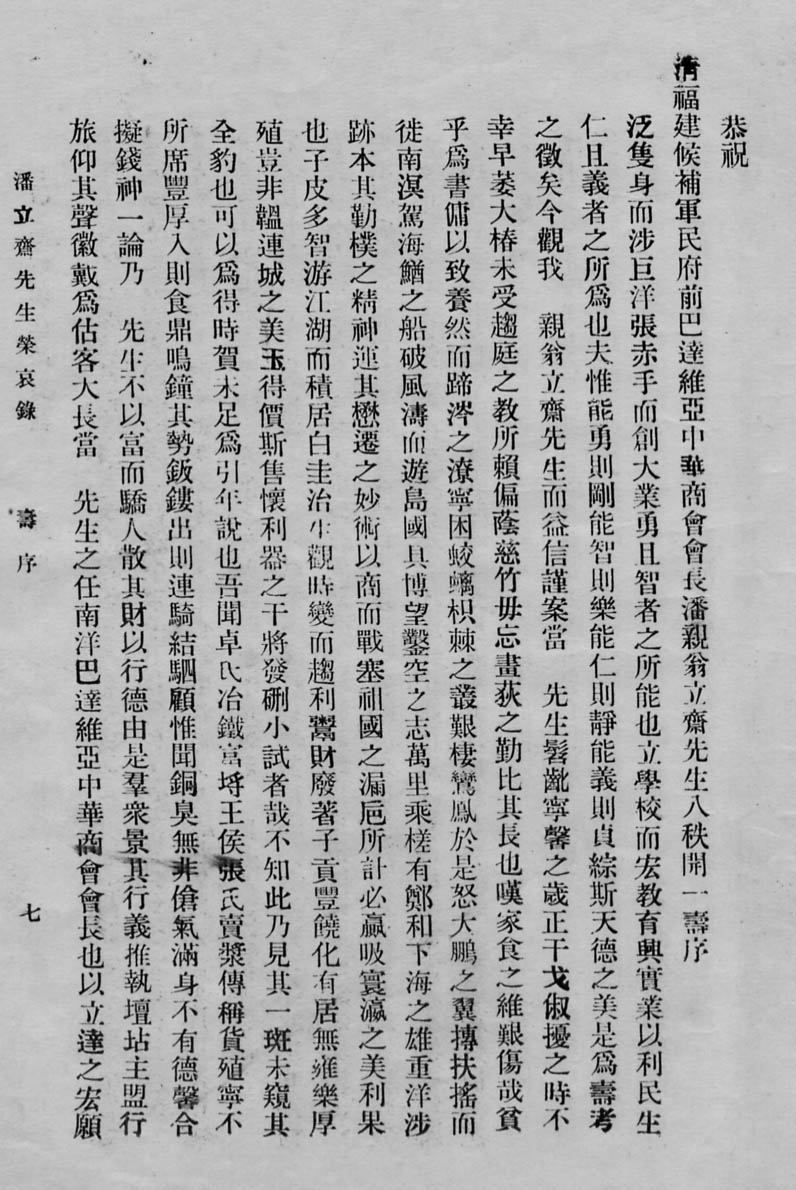 恭祝
清福建候補軍民府前巴達維亞中華商會會長潘親翁立齋先生八秩開一壽序
泛隻身而涉巨洋張赤手而創大業勇且智者之所能也立學校而宏教育興實業以利民生
仁且義者之所爲也夫惟能勇則剛能智則樂能仁則靜能義則貞綜斯天德之美是爲壽考
之徵矣今觀我　親翁立齋先生而益信謹案當　先生髫齔寧馨之歲正干戈俶擾之時不
幸早萎大椿未受趨庭之教所賴偏蔭慈竹毋忘畫荻之勤比其長也嘆家食之維艱傷哉貧
乎爲書傭以致養然而蹄涔之潦寧困蛟螭枳棘之叢艱棲鸞鳳於是怒大鵬之翼摶扶搖而
徙南溟駕海鰌之船破風濤而遊島國具博望鑿空之志萬里乘槎有鄭和下海之雄重洋涉
跡本其勤樸之精神運其懋遷之妙術以商而戰塞祖國之漏巵所計必贏吸寰瀛之美利果
也子皮多智游江湖而積居白圭治生觀時變而趨利鬻財廢著子貢豐饒化有居無雍樂厚
殖豈非韞連城之美玉得價斯售懷利器之干將發硎小試者哉不知此乃見其一斑未窺其
全豹也可以爲得時賀未足爲引年說也吾聞卓氏冶鐵富埒王侯張氏賣漿傳稱貨殖寧不
所席豐厚入則食鼎鳴鐘其勢鈑鏤出則連騎結駟顧惟聞銅臭無非傖氣滿身不有德馨合
擬錢神一論乃　先生不以富而驕人散其財以行德由是羣衆景其行義推執壇坫主盟行
旅仰其聲徽戴爲估客大長當　先生之任南洋巴達維亞中華商會會長也以立達之宏願
潘立齋先生榮哀錄　壽序　七